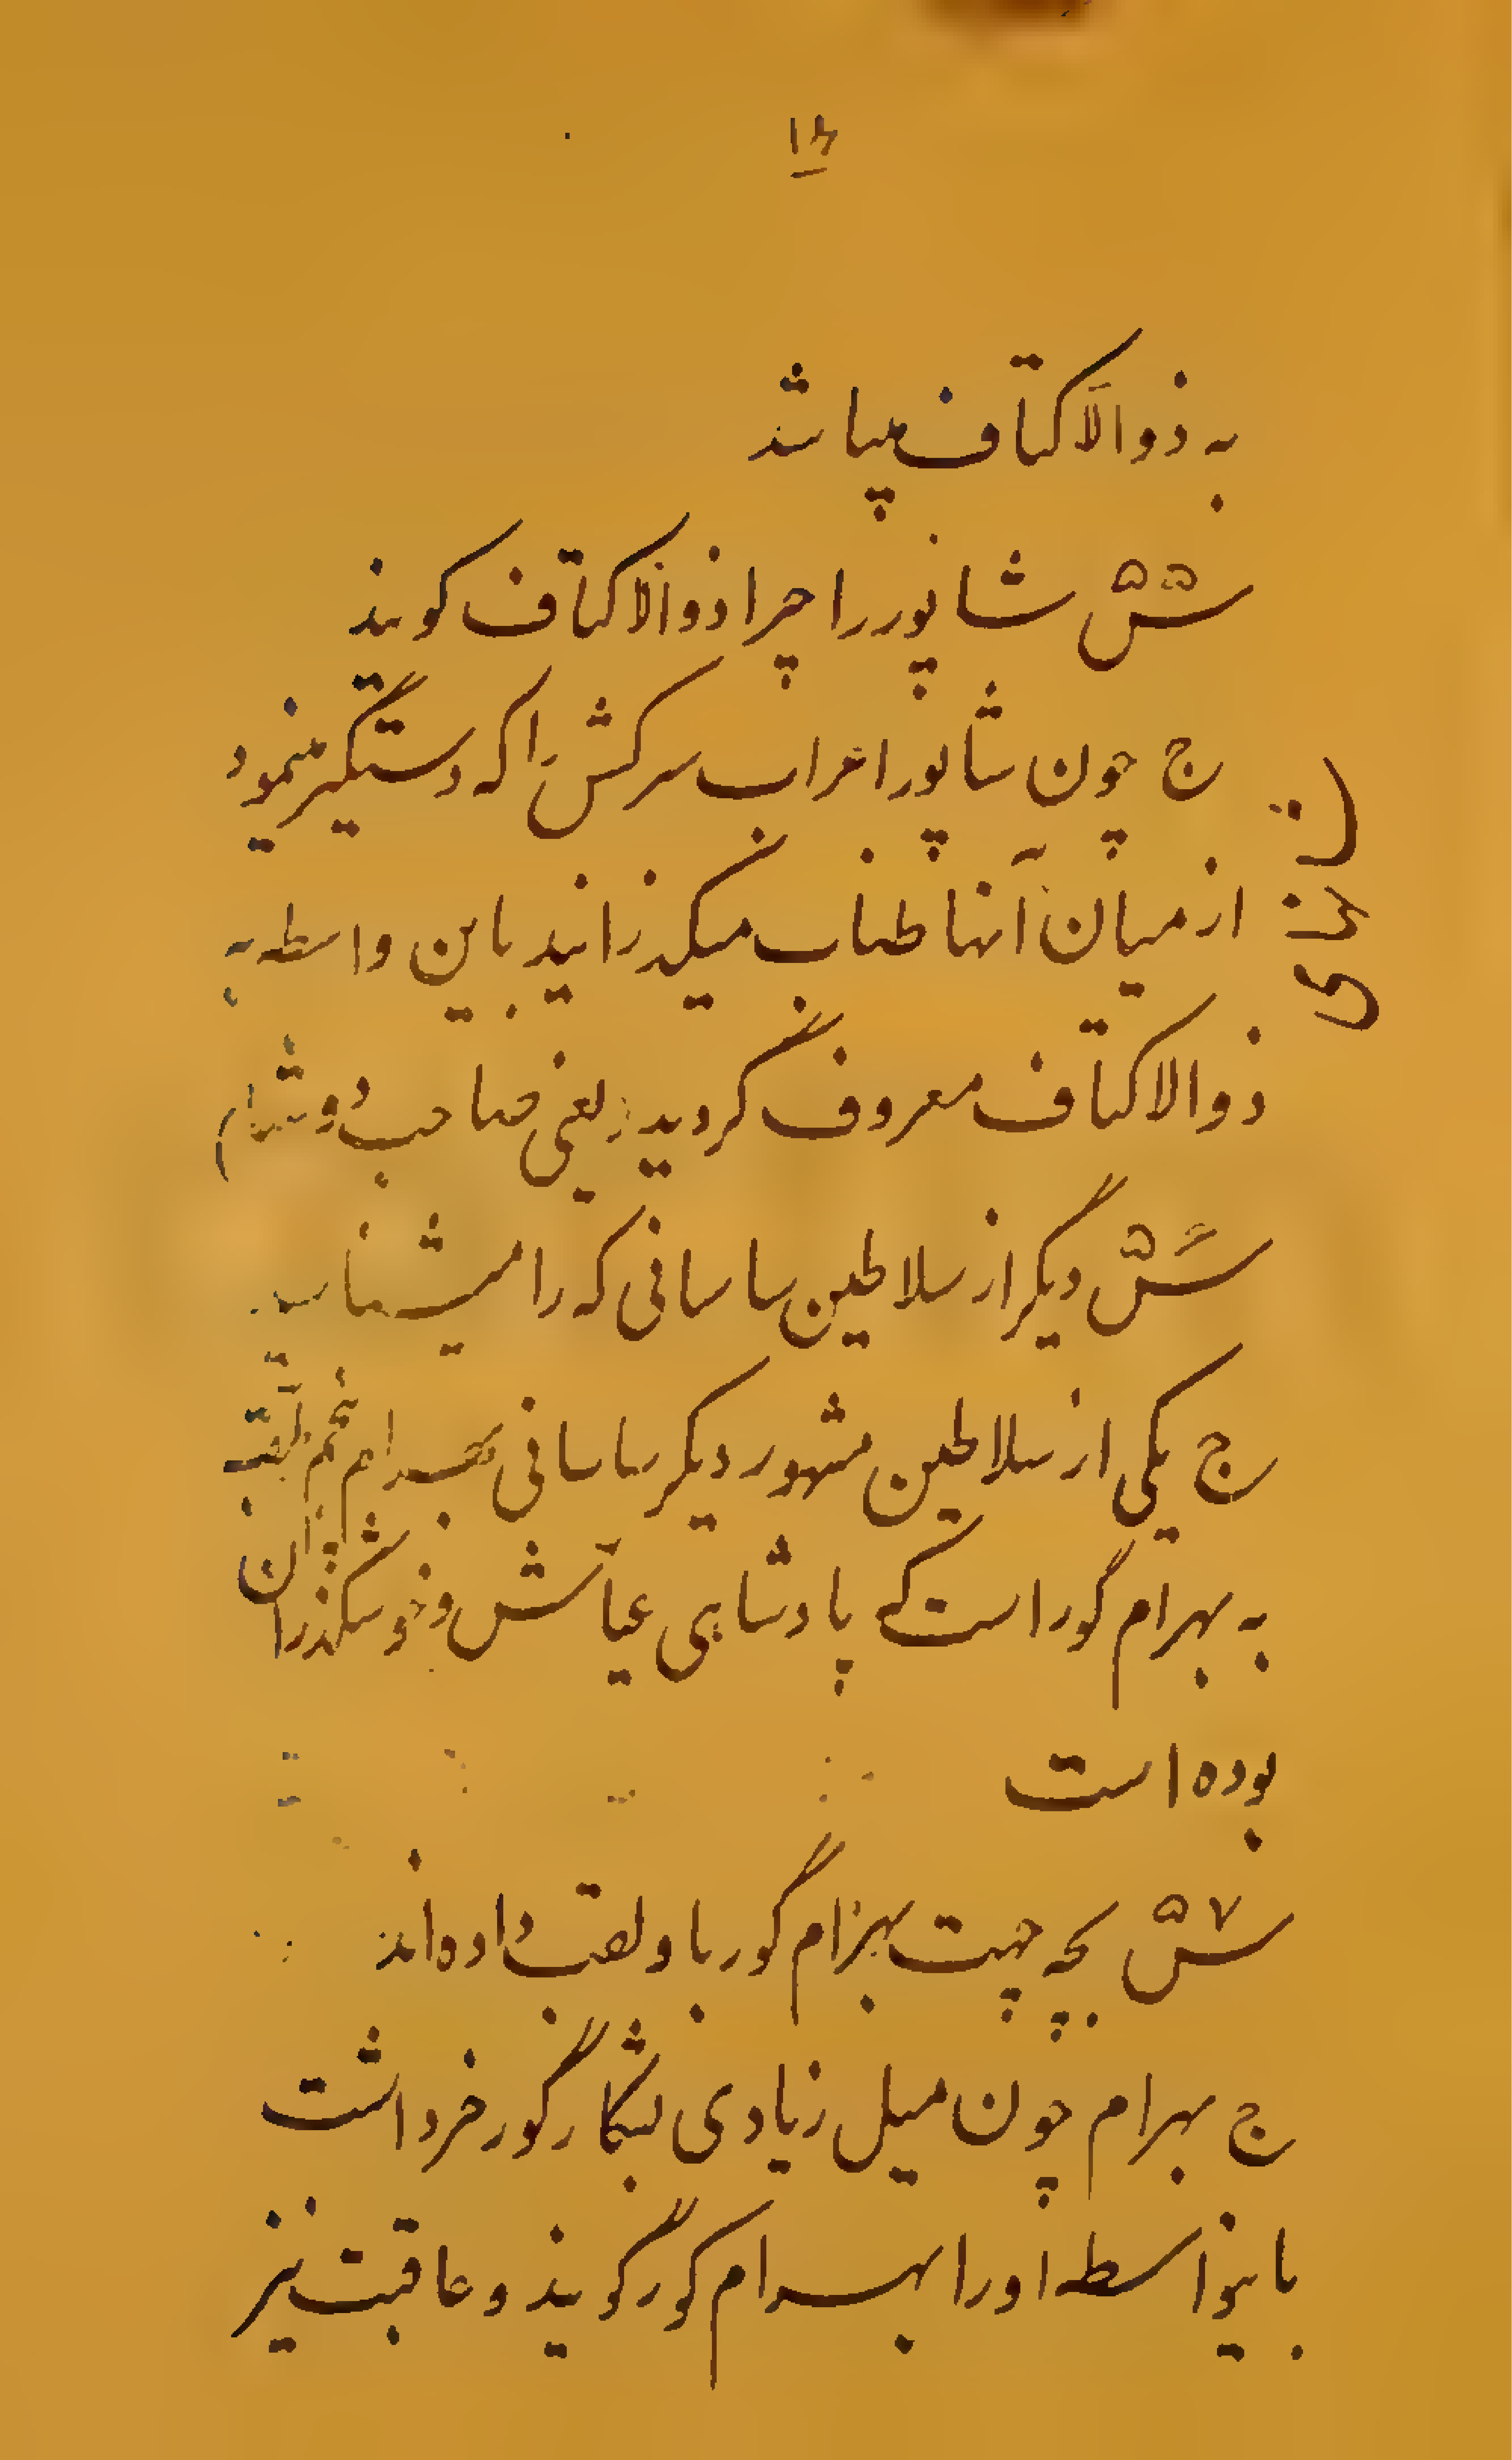 ۱۴
به ذوالاکتاف میباشد
س۵۵ شاپور را چرا ذوالاکتاف کویند
ج چون شاپور اعراب سرکش را که دستگیر مینمود
از میان آنها طناب میکذرانید باین واسطه به
ذوالاکتاف معروف گردید (یعنی صاحب دوشها)
س۵۶ دیگر از سلاطین ساسانی که را میشناسید
ج یکی از سلاطین مشهور دیکر ساسانی بهرام پنجم ملقب
به بهرام گور است که پادشاهی عیاش و خوشگذران
بوده است
س۵۷ بچه جهت بهرام گور باو لقب داده‌اند
ج بهرام چون میل زیادی بشکار گورخر داشت
باینواسطه او را بهرام کور گویند و عاقبت نیز